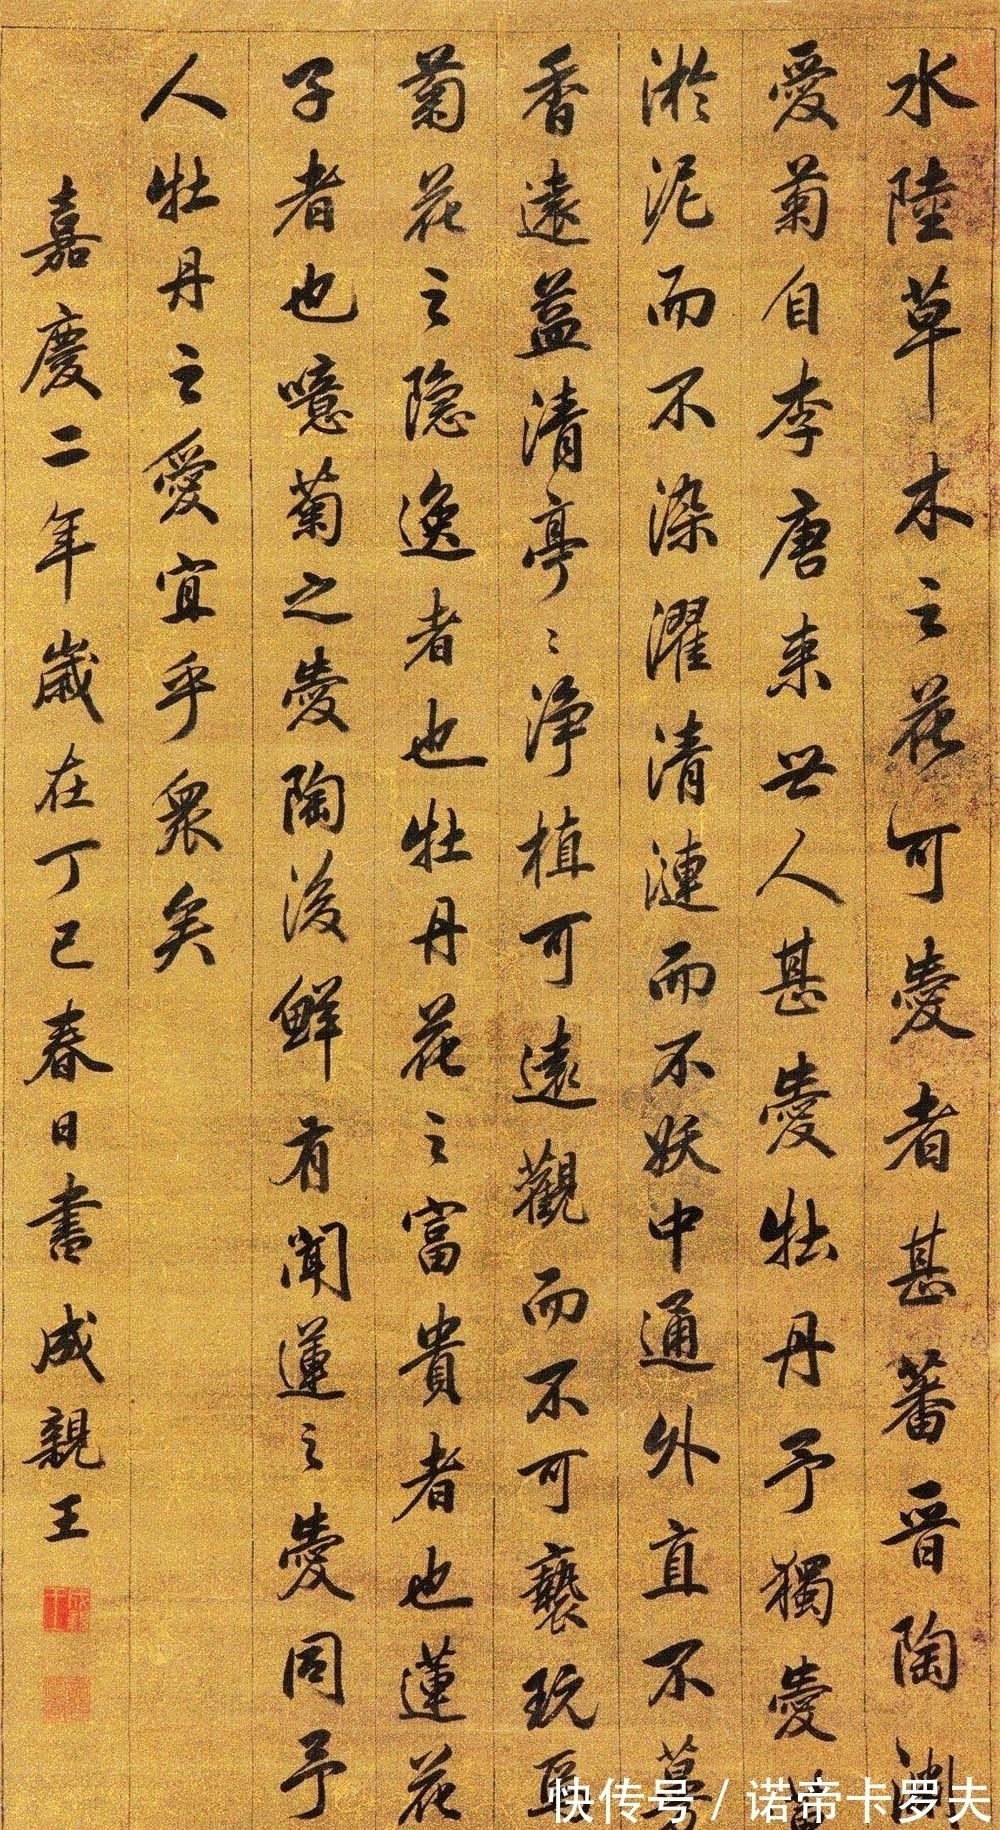 水陸草木之花可愛者甚蕃晋陶淵
愛菊自李唐来世人甚愛牡丹予獨愛
淤泥而不染濯清漣而不妖中通外直不蔓
香遠益清亭〻淨植可遠觀而不可褻玩
菊花之隐逸者也牡丹花之富貴者也蓮花
子者也噫菊之愛陶後鮮有聞蓮之愛同予
人牡丹之愛宜乎衆矣
嘉慶二年歲在丁巳春日書成親王
快传号／诺帝卡罗夫